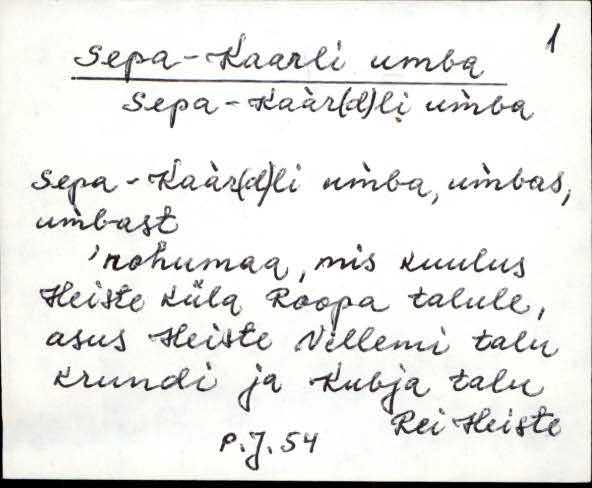 1
Sepa-Kaarli umba
Sepa-Kaàr(d)lị um̀ba
Sepa-Kaàr(d)li um̀ba, um̀bas,
um̀bast
'rohumaa, mis kuulus
Heiste küla Roopa talule,
asus Heiste Villemi talu
krundi ja Kubja talu
Rei Heiste
P.J.54